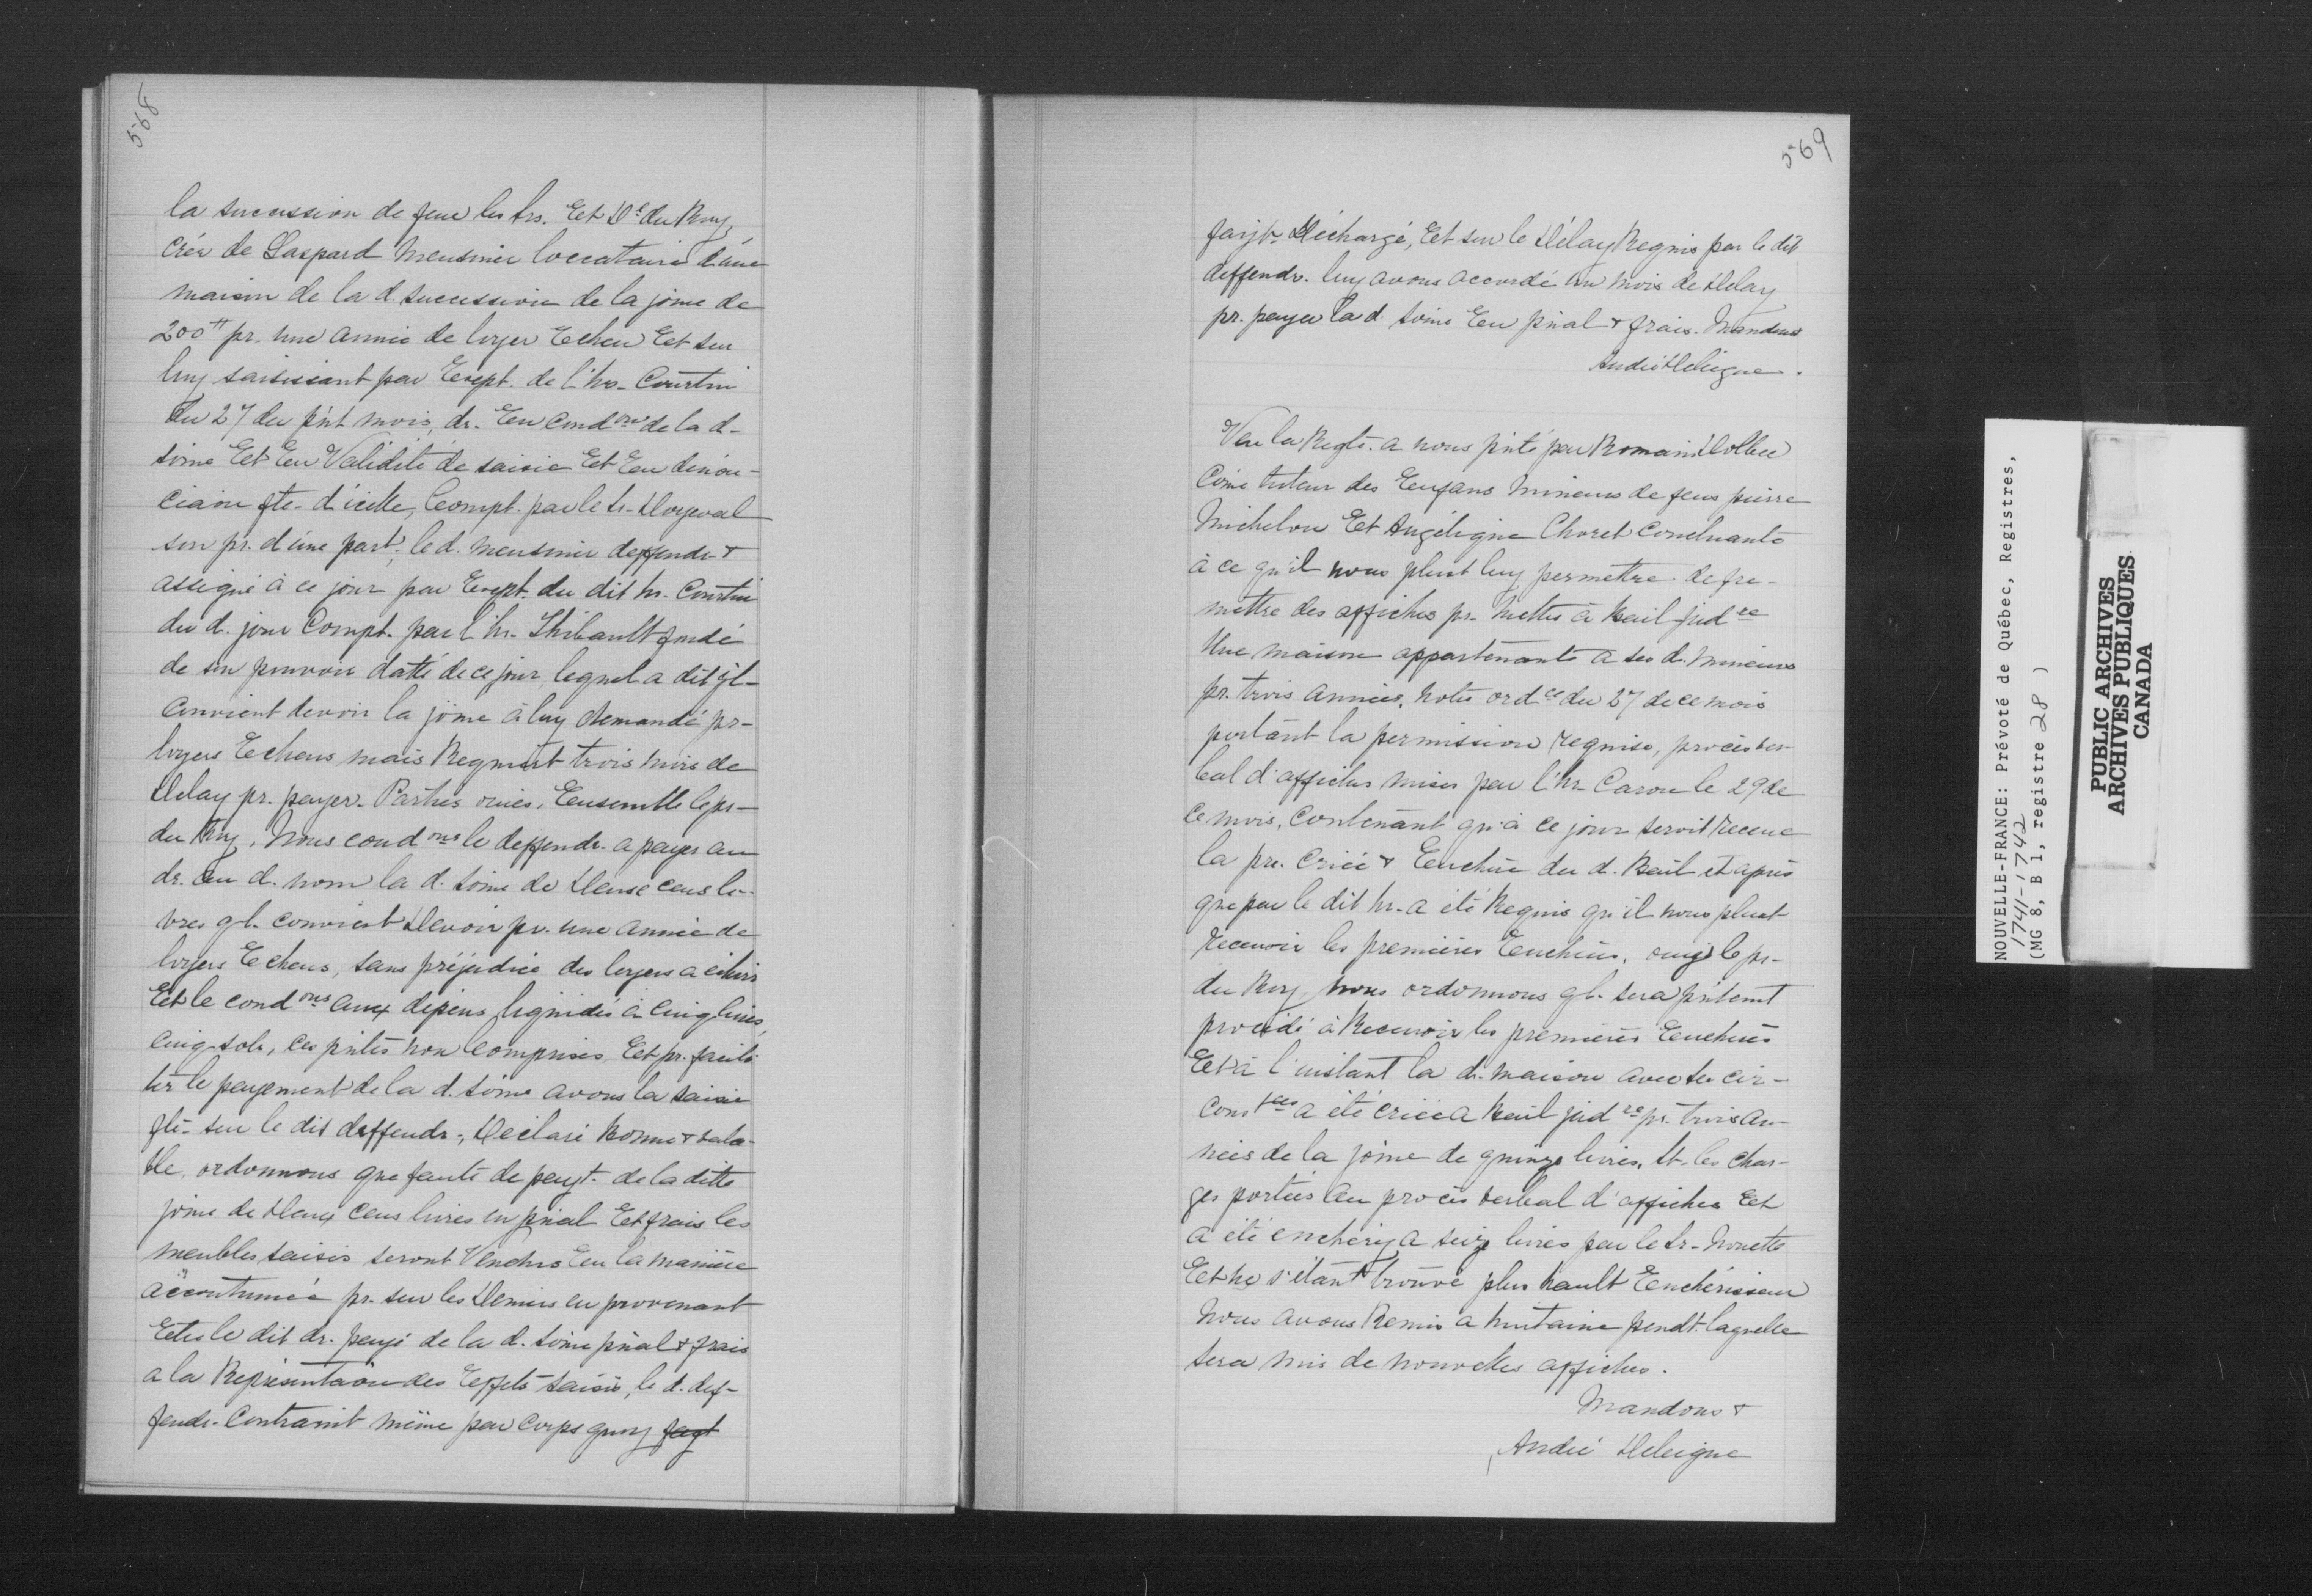 568
la succession de feue les srs. Et De du Roy,
crér de Gaspard Meusnier loccataire d'une
maison de la d. succession de la some de
200tt pr. une année de loyer Echeu Et sur
luy saisissant par Exept. de l'hr. Courtin
du 27 du pnt mois, dr. En condon de la d.
some Et En Validité de saisie Et En dénon-
ciaon fte. d'icelle, Compt. par le sr. Dorjeval
son pr. d'une part; le d. Meusnier deffendr. &
assigné à ce jour par Exept. du dit hr. Courtin
du d. jour Compt. par l'hr. Thibault fondé
de son pouvoir datté de ce jour, lequel a dit ql.
convient devoir la some à luy demandé pr.
loyers Echeus mais Requiert trois mois de
delay pr. payer. Parties ouies, Ensemble le pr.
du Roy, Nous condons le deffendr. a payer au
dr. au d. nom la d. some de deuse cens li-
vres ql. convient devoir pr. une année de
loyers Echeus, sans préjudice des loyers a échoir
Et le condons aux dépens liquidés à cinq livres,
cinq sols, ces pntes non comprises Et pr. facili-
ter le payement de la d. some avons la saisie
fte. sur le dit deffendr., déclaré bonne & vala-
ble, ordonnons que faute de payt. de la ditte
some de deux cens livres en pnal Et frais les
meubles saisis seront Vendus En la manière
accoutumée pr. sur les deniers en provenant
Etre le dit dr. payé de la d. some pnal & frais
a la Représentaon des Effets saisis, le d. def-
fendr. Contraint même par corps quoy fayt
569
fayt. déchargé, Et sur le délay Requis par le dit
deffendr. luy avons accordé un mois de delay
pr. payer la d. some En pnal & frais. Mandons
André Deleigne.
Veu la Reqte. a nous pnté par Romain Dolbec
Come tuteur des Enfans mineurs de feus pierre
Michelon Et Angélique Choret concluante
à ce qu'il nous plust luy permettre de fre.
mettre des affiches pr. mettre à bail judre
Une maison appartenante a ses d. mineurs
pr. trois années, notre ordce du 27 de ce mois
portant la permission requise, procès ver-
bal d'affiches mises par l'hr. Caron le 29 de
ce mois, contenant qu'à ce jour seroit receue
la pre. criée & Enchère du d. bail et après
que par le dit hr. a été Requis qu'il nous plust
recevoir les premières Enchères, ouy le pr.
du Roy, nous ordonnons ql. sera pntemt
procédé à Recevoir les premières Enchères
Et à l'instant la d. maison avec ses cir-
constces a été criée a bail judre pr. trois an-
nées de la some de quinze livres, et les char-
ges portées au procès verbal d'affiches Et
a été enchéry a seize livres par le sr. Nouette
Et ne s'étant trouvé plus hault Enchérisseur
nous avons Remis a huitaine pendt. laquelle
sera mis de nouvelles affiches.
Mandons &
André Deleigne
NOUVELLE-FRANCE: Prévoté de Québec, Registres,
1741-1742
(MG 8, B 1, registre 28 )
PUBLIC ARCHIVES
ARCHIVES PUBLIQUES
CANADA